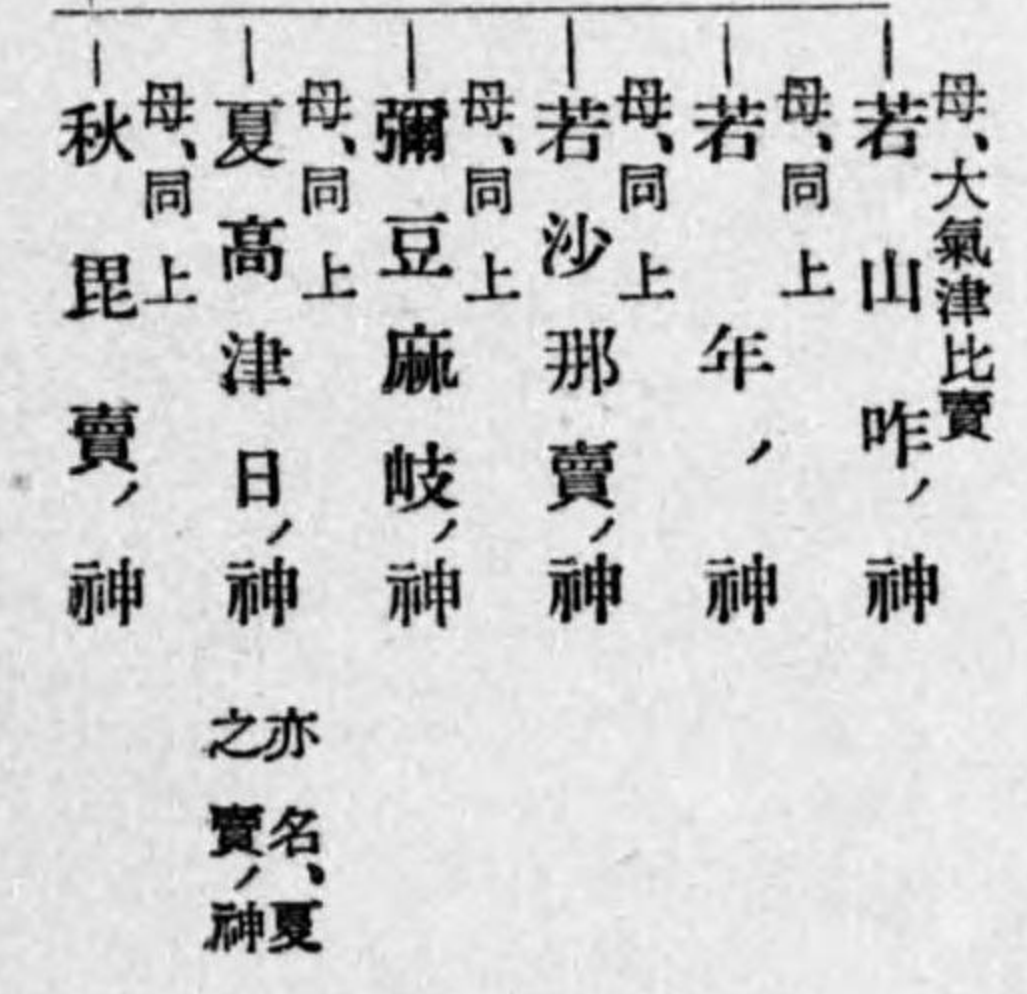 母、大氣津比賣
若山咋ノ神
母、同上
若年ノ神
母、同上
若沙那賣ノ神
母、同上
彌豆麻岐ノ神
母、同上
夏高津日ノ神
亦名、夏
之賣ノ神
母、同上
秋毘賣ノ神